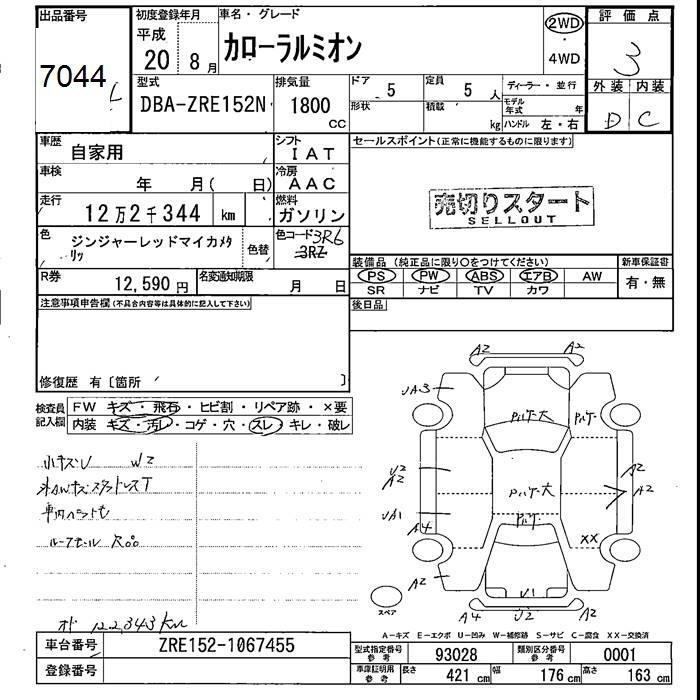 出品番号
7044
初度登録年月
平成
20 8月
車名・グレード
カローラルミオン
2WD
・
4WD
評価点
3
外装 内装
D C
型式
DBA-ZRE152N
排気量
1800
CC
ドア
5
定員
5人
形状
積載
kg
ディーラー・並行
モデル年式 年
ハンドル 左・右
車歴
自家用
シフト
IAT
車検
年 月( 日)
冷房
AAC
走行
12万2千344 km
燃料
ガソリン
色
ジンジャーレッドマイカメタ
リッ
色替
色コード
3R6
3RZ
R券
12,590円
名変通知期限
月 日
セールスポイント(正常に機能するものに限ります)
売切りスタート
SELLOUT
装備品(純正品に限り○をつけてください)
新車保証書
PS PW ABS エアB AW
SR ナビ TV カワ
有・無
後日品
注意事項申告欄(不具合内容等は具体的に記入して下さい)
修復歴 有〔箇所 〕
検査員
記入欄
FW キズ・飛石・ヒビ割・リペア跡・×要
内装 キズ・汚レ・コゲ・穴・スレ・キレ・破レ
小キズU W2
車内ハニット七
122,343Km
A2 A2
UA3
Pルケ-大 Pルケ-
U2
A2
A2
A2
Pルケ-大
UA1
A4
Pルケ-
XX
A2
A2
スペア
U1
A4 U2 A2
A-キズ E-エクボ U-凹み W-補修跡 S-サビ C-腐食 XX-交換済
車台番号
ZRE152-1067455
登録番号
型式指定番号
参考
93028
類別区分番号
参考
0001
車庫証明用
参考
長さ 421 cm 幅 176 cm 高さ 163 cm